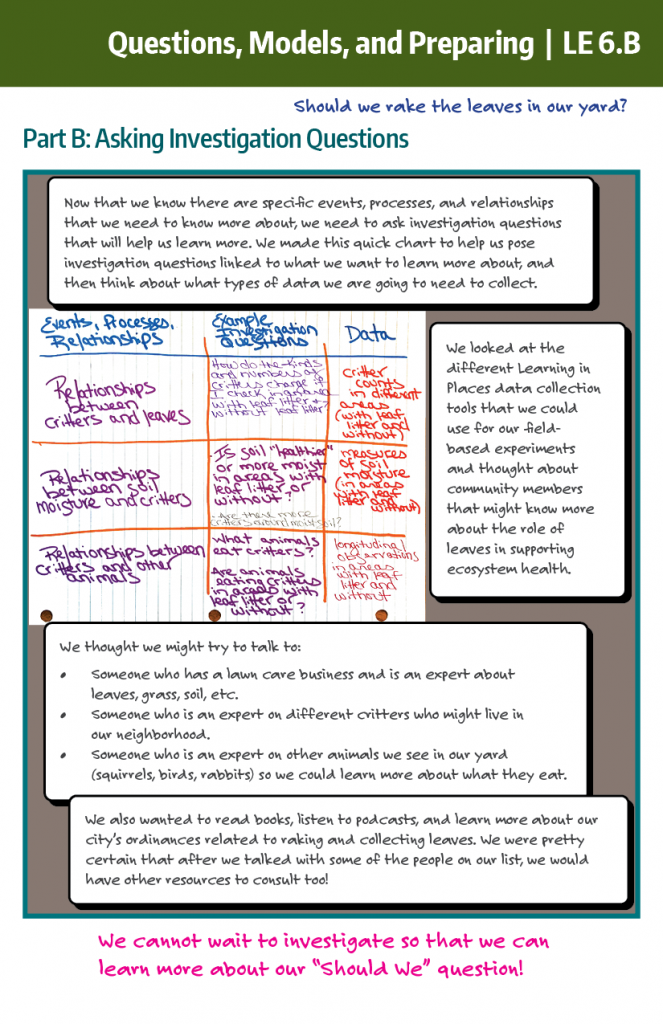 Questions, Models, and Preparing | LE 6.B
Should we rake the leaves in our yard?
Part B: Asking Investigation Questions
Now that we know there are specific events, processes, and relationships
that we need to know more about, we need to ask investigation questions
that will help us learn more. We made this quick chart to help us pose
investigation questions linked to what we want to learn more about, and
then think about what types of data we are going to need to collect.
Events, Processes,
Relationships
Example
Investigation
Questions
Data
Relationships
between
critters and leaves
How do the kinds
and numbers of
critters change if
I check in an area
with leaf litter &
without leaf litter?
critter
counts
in different
areas
(with leaf
litter and
without)
Relationships
between soil
moisture and critters
· Is soil "healthier"
or more moist
in areas with
leaf litter or
without?
· Are there more
critters around moist soil?
measures
of soil
moisture
(in areas
with leaf
litter and
without)
Relationships between
critters and other
animals
What animals
eat critters?
Are animals
eating critters
in areas with
leaf litter or
without?
longitudinal
observations
in areas
with leaf
litter and
without
We looked at the
different Learning in
Places data collection
tools that we could
use for our field-
based experiments
and thought about
community members
that might know more
about the role of
leaves in supporting
ecosystem health.
We thought we might try to talk to:
• Someone who has a lawn care business and is an expert about
leaves, grass, soil, etc.
• Someone who is an expert on different critters who might live in
our neighborhood.
• Someone who is an expert on other animals we see in our yard
(squirrels, birds, rabbits) so we could learn more about what they eat.
We also wanted to read books, listen to podcasts, and learn more about our
city's ordinances related to raking and collecting leaves. We were pretty
certain that after we talked with some of the people on our list, we would
have other resources to consult too!
We cannot wait to investigate so that we can
learn more about our "Should We" question!